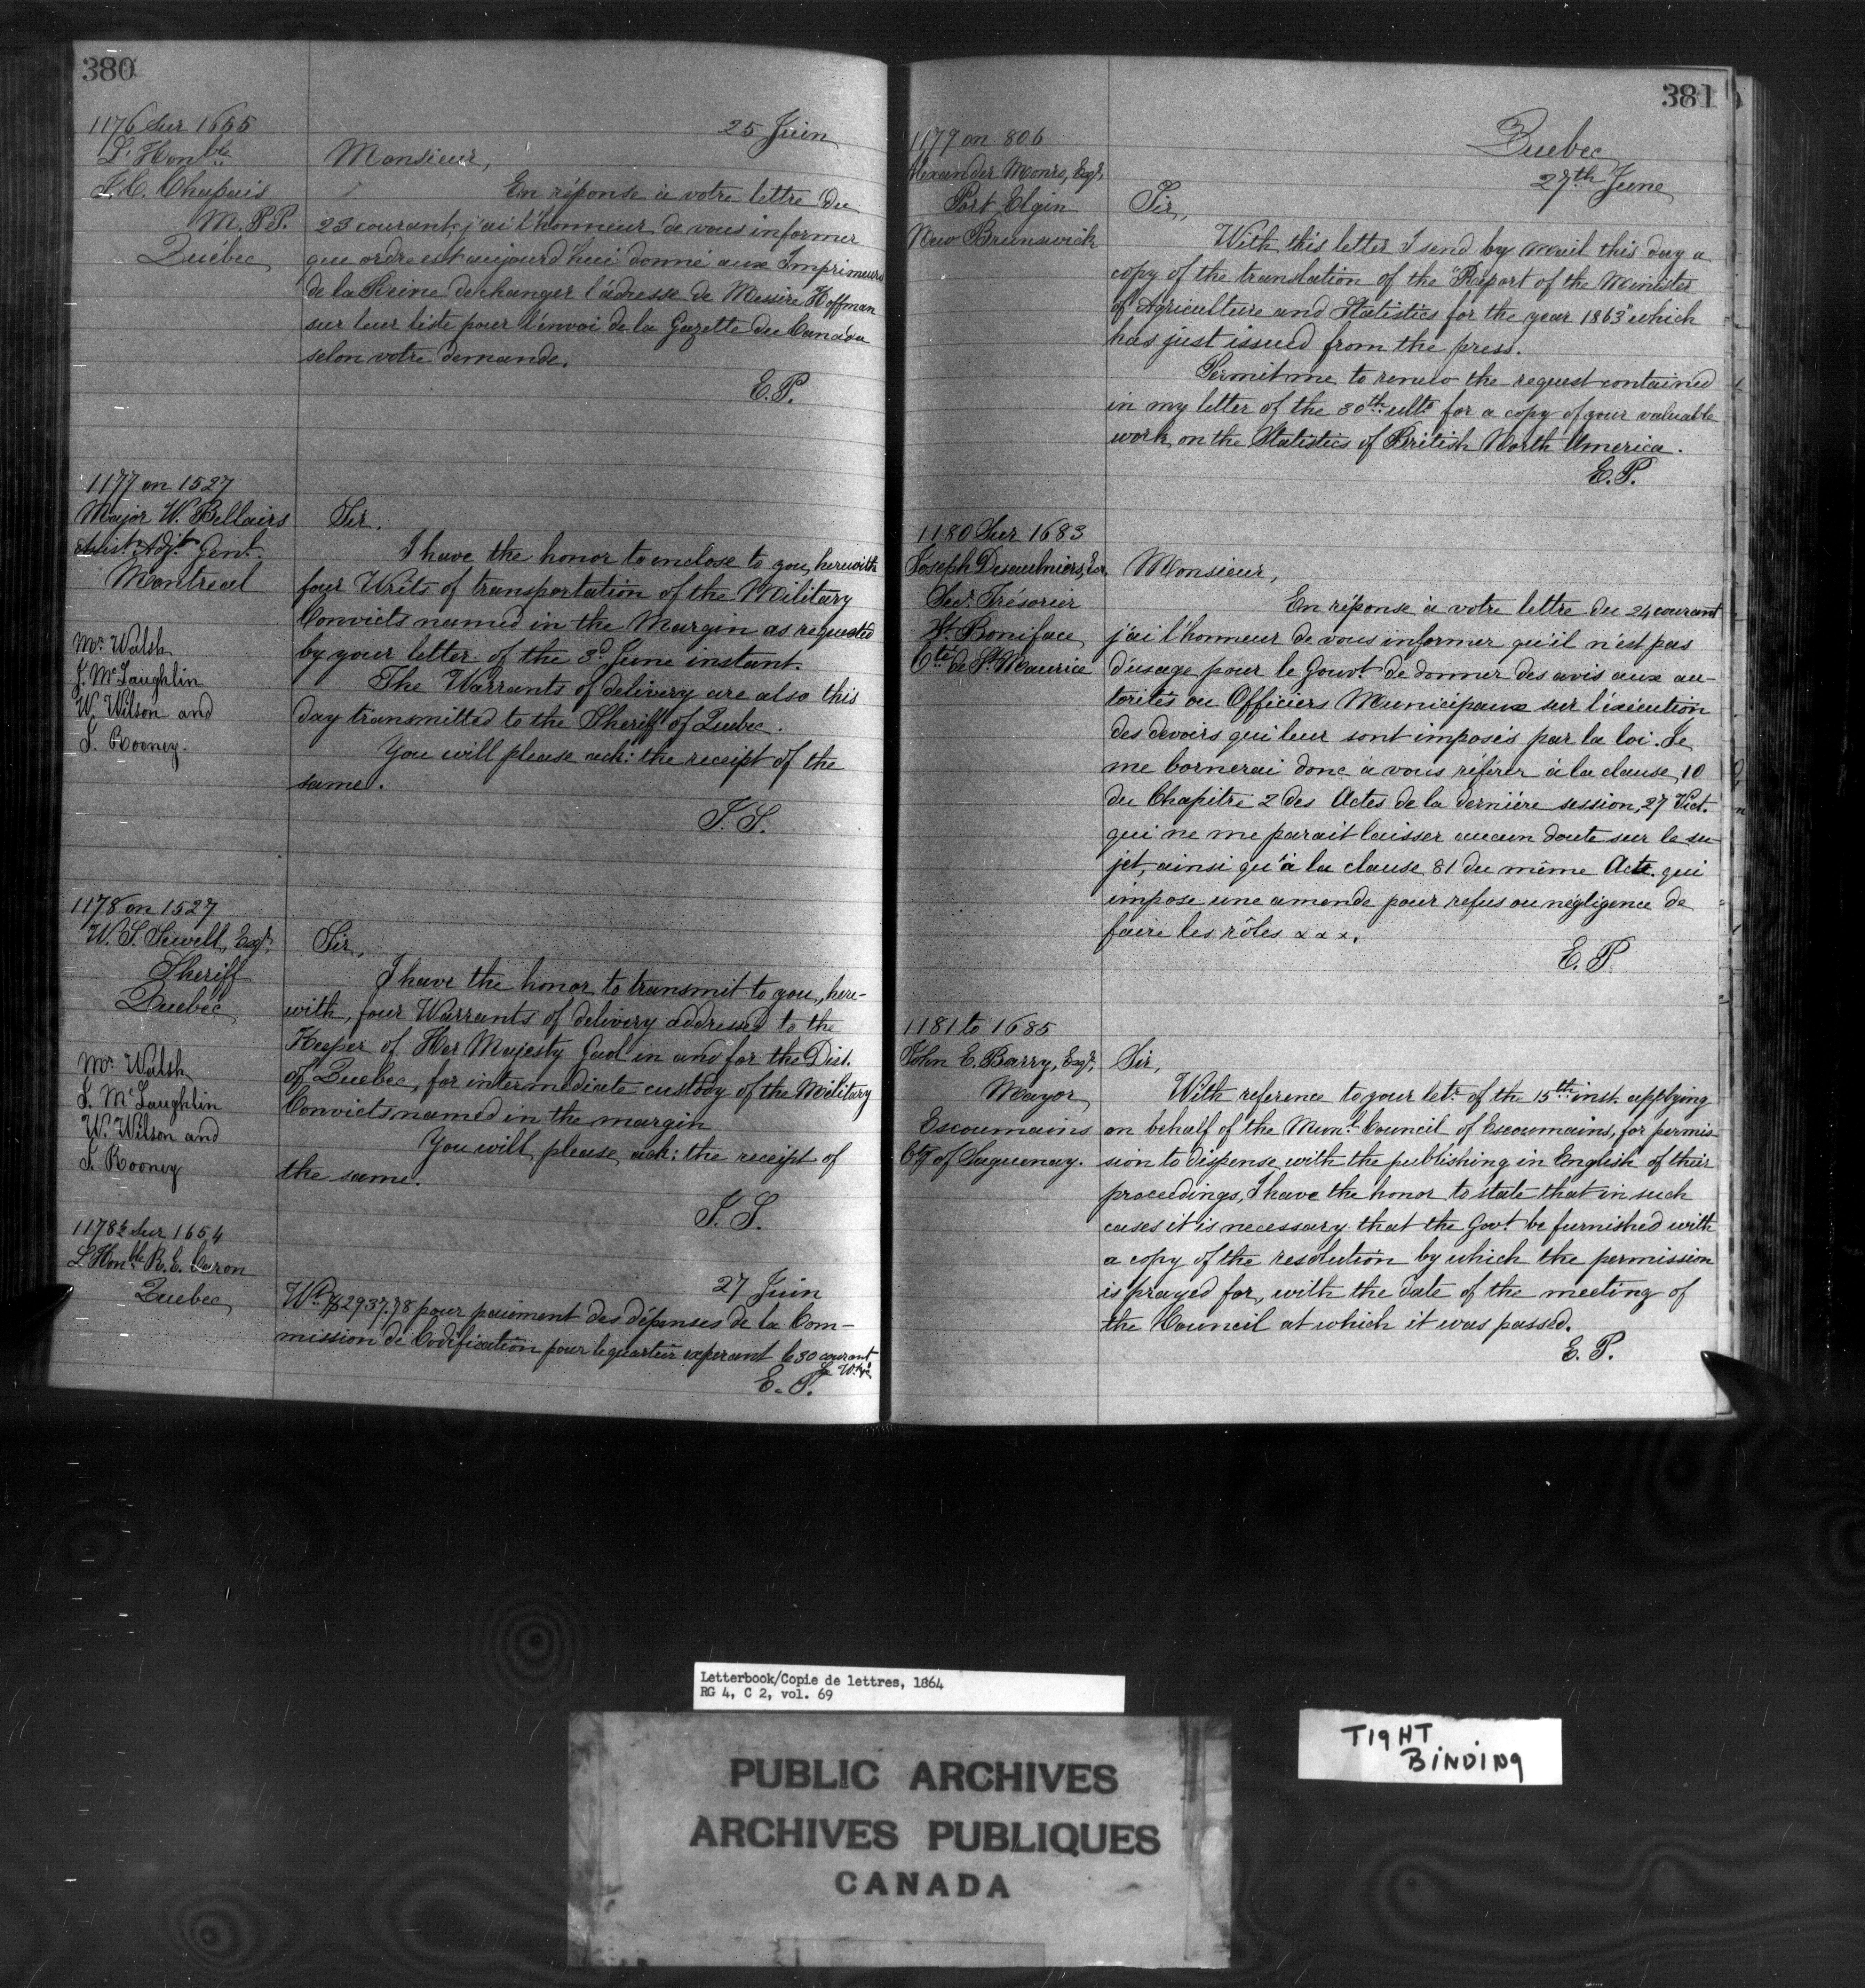 380
1176 Sur 1655
L'Honble
J. C. Chapais
M.P.P.
Québec
25 Juin
Monsieur,
En réponse à votre lettre du
23 courant, j'ai l'honneur de vous informer
que ordre est aujourd'hui donné aux Imprimeurs
de la Reine de changer l'adresse de Messire Hoffman
sur leur liste pour l'envoi de la Gazette du Canada
selon votre demande.
E.P.
1177 on 1527
Major W. Bellairs
Assist. Adjt. Genl.
Montreal
Mr. Walsh
J. McLaughlin
W. Wilson and
T. Rooney.
Sir.
I have the honor to enclose to you, herewith
four Writs of transportation of the Military
Convicts named in the Margin as requested
by your letter of the 3d June instant.
The Warrants of delivery are also this
day transmitted to the Sheriff of Quebec.
You will please ack: the receipt of the
same.
1178 on 1527
W. S. Sewell, Esqr.
Sheriff
Quebec
Mr. Walsh
J. McLaughlin
W. Wilson and
T. Rooney
Sir,
I have the honor to transmit to you, here-
with, four Warrants of delivery addressed to the
Keeper of Her Majesty Gaol in and for the Dist.
of Quebec, for intermediate custody of the Military
Convicts named in the margin
You will please ack: the receipt of
the same.
1178½ Sur 1654
L'Honble R. E. Caron
Quebec
27 Juin
Wt. $2937.78 pour paiment des dépenses de la Com-
mission de Codification pour le quartier expirant le 30 courant
E. P.
381
Quebec
27th June
1179 on 806
Alexander Monro, Esqr.
Port Elgin
New Brunswick
Sir,
With this letter I send by mail this day a
copy of the translation of the "Report of the Minister
of Agriculture and Statistics for the year 1863" which
has just issued from the press.
Permit me to renew the request contained
in my letter of the 30th ulto. for a copy of your valuable
work on the Statistics of British North America.
E. P.
1180 Sur 1683
Joseph Desaulniers, Ecr.
Secr. Trésorier
St. Boniface
Cté de St. Maurice
Monsieur,
En réponse à votre lettre du 24 courant
j'ai l'honneur de vous informer qu'il n'est pas
d'usage pour le Gouvt. de donner des avis aux au-
torités ou Officiers Municipaux sur l'exécution
des devoirs qui leur sont imposés par la loi. Je
me bornerai donc à vous référer à la clause 10
du Chapitre 2 des Actes de la dernière session, 27 Vict.
qui ne me parait laisser aucun doute sur le su-
jet, ainsi qu'à la clause 81 du même Acte qui
impose une amende pour refus ou négligence de
faire les rôles x x x.
E. P
1181 to 1685
John E. Barry, Esqr.
Mayor
Escoumains
Cty of Saguenay.
Sir,
With reference to your letr. of the 15th inst. applying
on behalf of the Munl. Council of Escoumains, for permis-
sion to dispense with the publishing in English of their
proceedings, I have the honor to state that in such
cases it is necessary that the Govt. be furnished with
a copy of the resolution by which the permission
is prayed for, with the date of the meeting of
the Council at which it was passed.
E. P.
Letterbook/Copie de lettres, 1864
RG 4, C 2, vol. 69
TIGHT
BINDING
PUBLIC ARCHIVES
ARCHIVES PUBLIQUES
CANADA